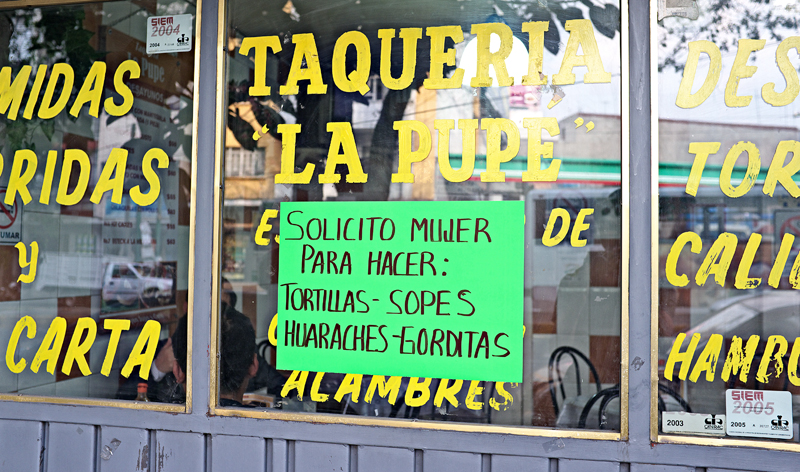 SIEM
2004
MIDAS
RRIDAS
y
CARTA
TAQUERIA
"LA PUPE"
DE
SOLICITO MUJER
PARA HACER:
TORTILLAS-SOPES
HUARACHES-GORDITAS
ALAMBRES
DES
TOR
CALI
HAMBU
2003
SIEM
2005
2005